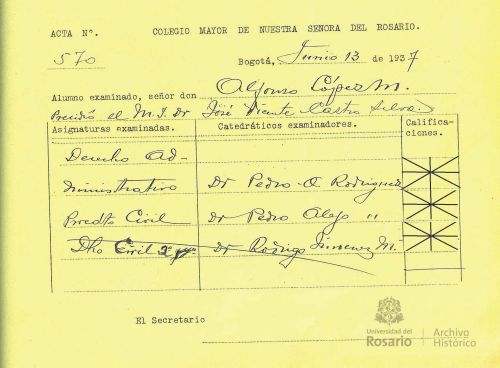 ACTA Nº. COLEGIO MAYOR DE NUESTRA SEÑORA DEL ROSARIO.
570 Bogotá, Junio 13 de 1937
Alumno examinado, señor don Alfonso López M.
Presidió el M. I. Dr José Vicente Castro Silva.
Asignaturas examinadas. Catedráticos examinadores. Califica-
ciones.
Derecho Ad-
ministrativo Dr Pedro A Rodriguez
Procdto Civil Dr Pedro Alejo "
Dho Civil 3º Dr Rodrigo Jimenez M.
El Secretario
Universidad del
Rosario
Archivo
Histórico